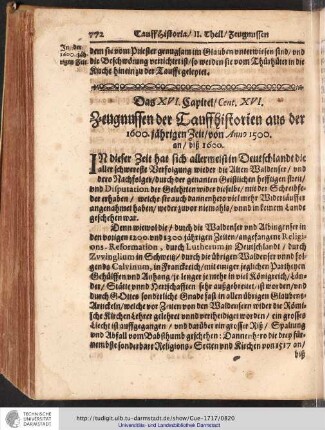 772 Tauffhistoria/ II. Theil/ Zeugnussen
In der 1600. jährigen Zeit
dem sie vom Priester genugsam im Glauben unterwiesen sind/ und
die Beschwörung verrichtet ist/ so werden sie vom Thürhüter in die
Kirche hinein zu der Tauffe geleytet.
Das XVI. Capitel/ Cent. XVI.
Zeugnussen der Tauffhistorien aus der
1600. jährigen Zeit/ von Anno 1500.
an/ biß 1600.
IN dieser Zeit hat sich allermeist in Deutschlandt die
aller schwereste Verfolgung wieder die Alten Waldenser/ und
dero Nachfolger/ durch der genanten Geistlichen hefftigen streit/
und Disputation der Gelehrten wider dieselbe/ mit der Schreibfeder
erhaben/ welche sie auch dannenhero viel mehr Widertäuffer
angenahmet haben/ weder zuvor niemahls/ und in keinem Lande
geschehen war.
Denn wiewol die/ durch die Waldenser und Albingenser in
den vorigen 1200. und 1300. jährigen Zeiten/ angefangene Religions-
Reformation, durch Lutherum in Deutschlandt/ durch
Zvvinglium in Schweitz/ durch die übrigen Waldenser unnd folgends
Calvinum, in Franckreich/ mit enger jeglichen Partheyen
Gehülffen und Anhang/ je lenger je mehr in viel Königreich/ Länder/
Stätte und Herrschafften sehr außgebreitet ist worden/ und
durch Gottes sonderliche Gnade fast in allen übrigen Glaubens-
Artickeln/ welche vor Zeiten von den Waldensern wider die Römische
Kirchen Lehrer gelehret unnd vertheidiget worden/ ein grosses
Liecht ist auffgegangen/ und darüber ein grosser Riß/ Spaltung
und Abfall vom Babsthumb geschehen: Dannenhero die drey fürnembste
sonderbare Religions-Secten und Kirchen von 1517 an/
biß
TECHNISCHE
UNIVERSITÄT
DARMSTADT
http://tudigit.ulb.tu-darmstadt.de/show/Gue-1717/0820
Universitäts- und Landesbibliothek Darmstadt